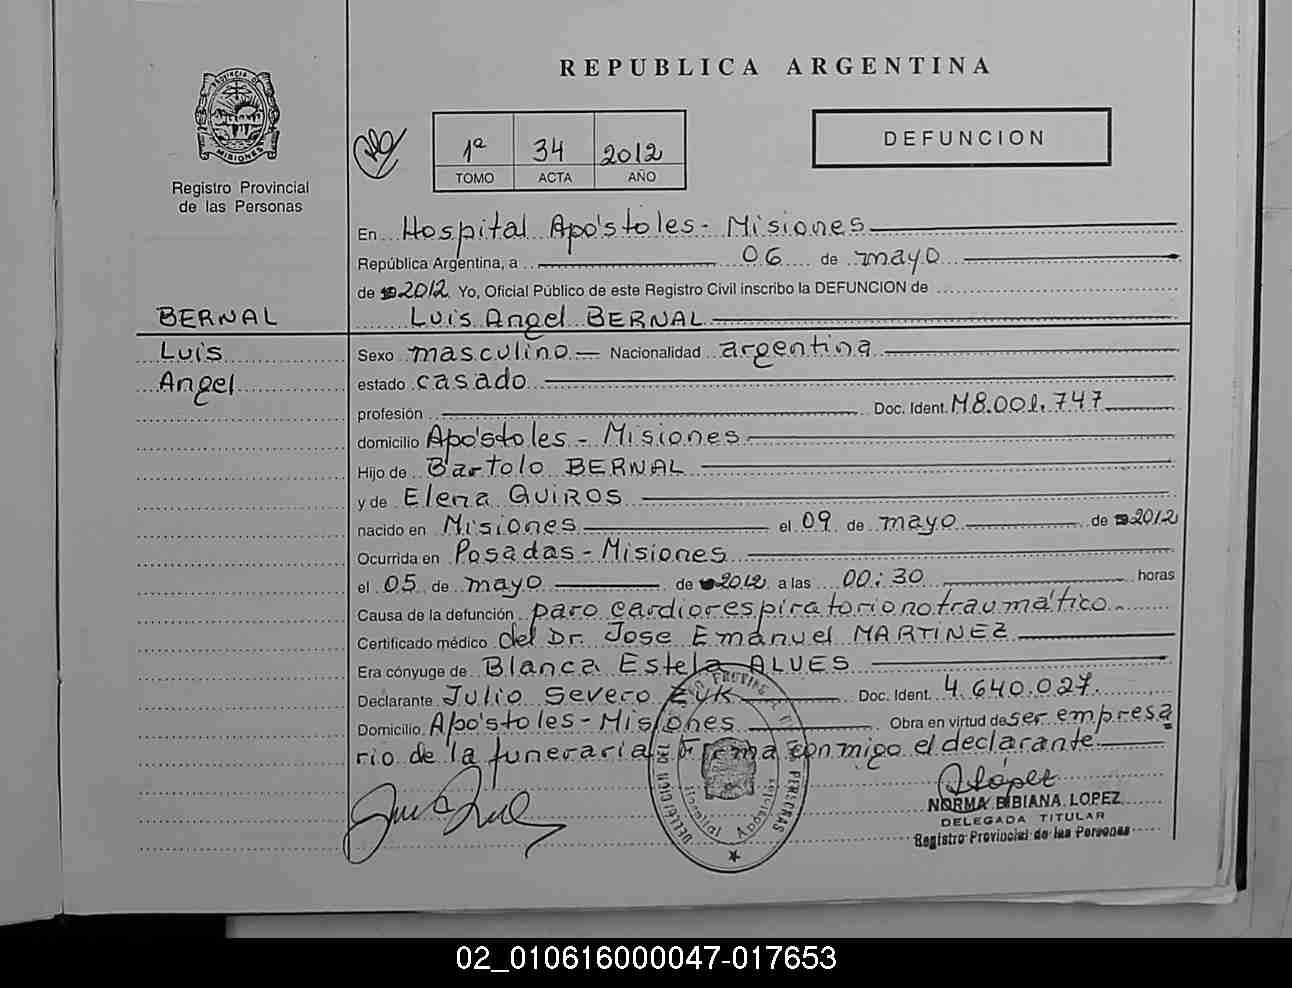 REPUBLICA ARGENTINA
PROVINCIA DE
MISIONES
Registro Provincial
de las Personas
1ª 34 2012
TOMO ACTA AÑO
DEFUNCION
En Hospital Apóstoles - Misiones
República Argentina, a 06 de mayo
de 2012 Yo, Oficial Público de este Registro Civil inscribo la DEFUNCION de
BERNAL
Luis Angel BERNAL
Luis
Angel
Sexo masculino Nacionalidad argentina
estado casado
profesión Doc. Ident. M8.001.747
domicilio Apóstoles - Misiones
Hijo de Bartolo BERNAL
y de Elena QUIROS
nacido en Misiones el 09 de mayo de 2012
Ocurrida en Posadas - Misiones
el 05 de mayo de 2012 a las 00:30 horas
Causa de la defunción paro cardiorespiratorio no traumático.
Certificado médico del Dr. Jose Emanuel MARTINEZ
Era cónyuge de Blanca Estela ALVES
Declarante Julio Severo Doc. Ident. 4.640.027.
Domicilio Apóstoles - Misiones Obra en virtud de ser empresa
rio de la funeraria Firma conmigo el declarante
NORMA BIBIANA LOPEZ
DELEGADA TITULAR
Registro Provincial de las Personas
Hospital Apóstoles
02_010616000047-017653